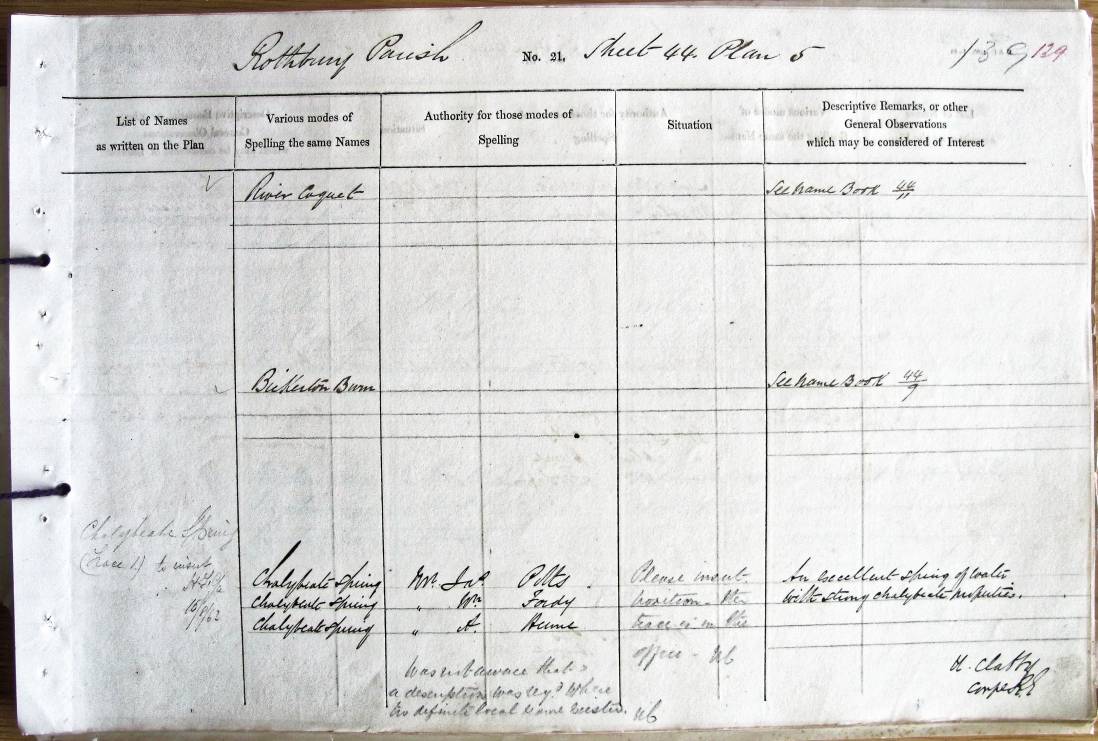 Rothbury Parish No. 21, Sheet 44. Plan 5
139 129
List of Names
as written on the Plan
Various modes of
Spelling the same Names
Authority for those modes of
Spelling
Situation
Descriptive Remarks, or other
General Observations
which may be considered of Interest
River Coquet
See Name Book 44/11
Bickerton Burn
See Name Book 44/9
Chalybeate Spring
(Trace 1) to insert
Chalybeate Spring
Chalybeate Spring
Chalybeate Spring
Mr. Jas. Potts
" Wm Fordy
" A. Hume
Please insert
position. The
trace is in the
office -
An excellent spring of water
with strong chalybeate properties.
Was not aware that
a description was reqd. where
no definite local name exists.